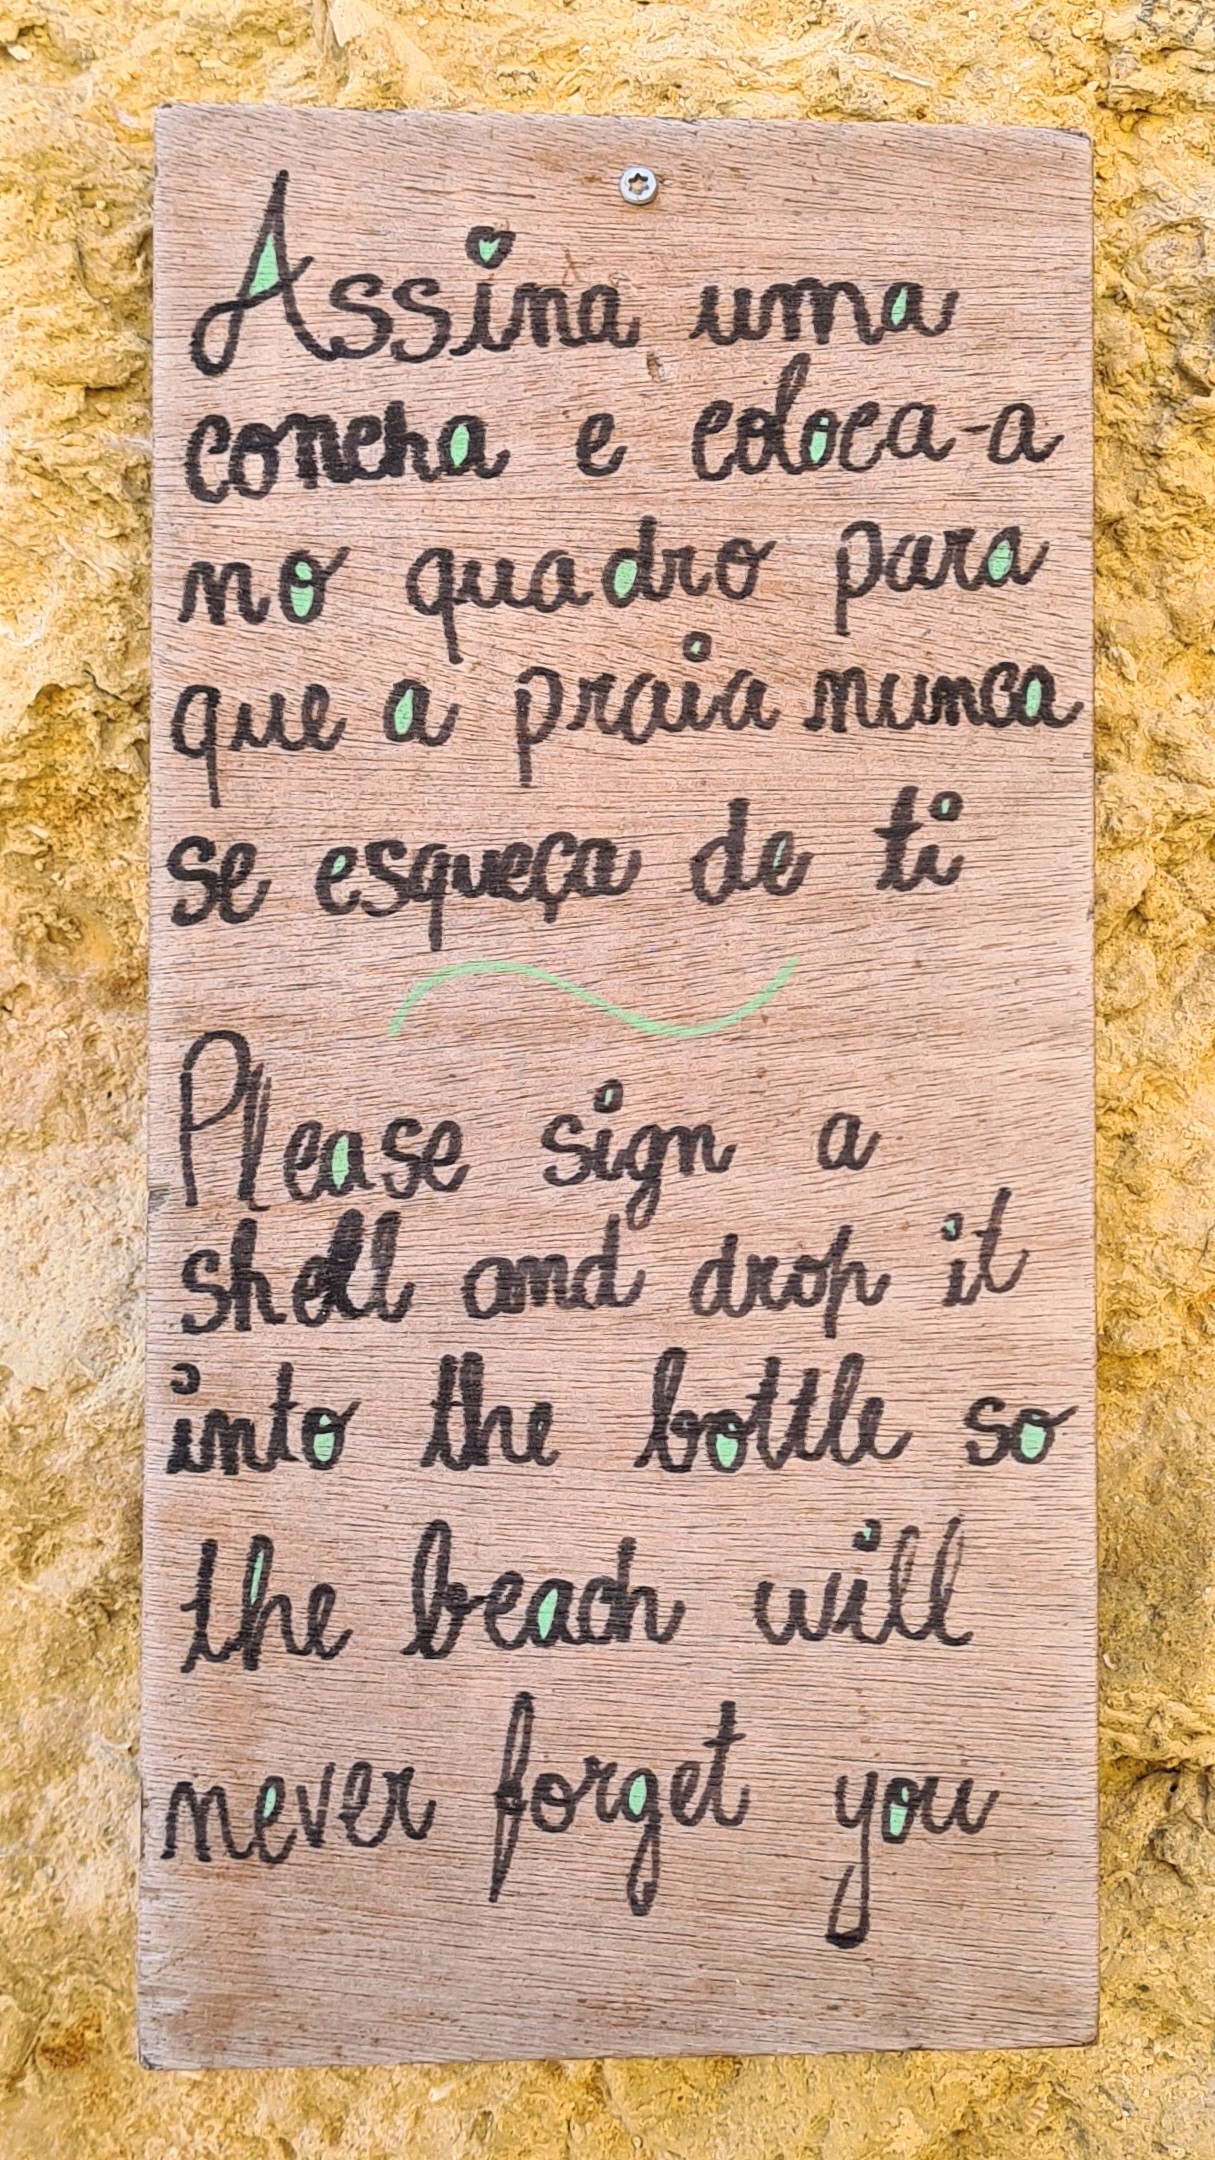 Assina uma
concha e coloca-a
no quadro para
que a praia nunca
se esqueça de ti
Please sign a
shell and drop it
into the bottle so
the beach will
never forget you